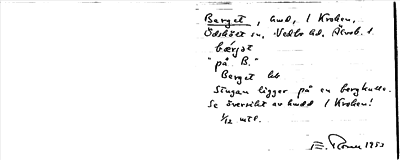 Berget, hmd, i Kroken,
Ödskölt sn, Vedbo hd, Älvsb. l.
bærjət
"på B."
Berget lbt
Stugan ligger på en bergkulle.
Se översikt av hmdd i Kroken!
1/12 mtl.
1953